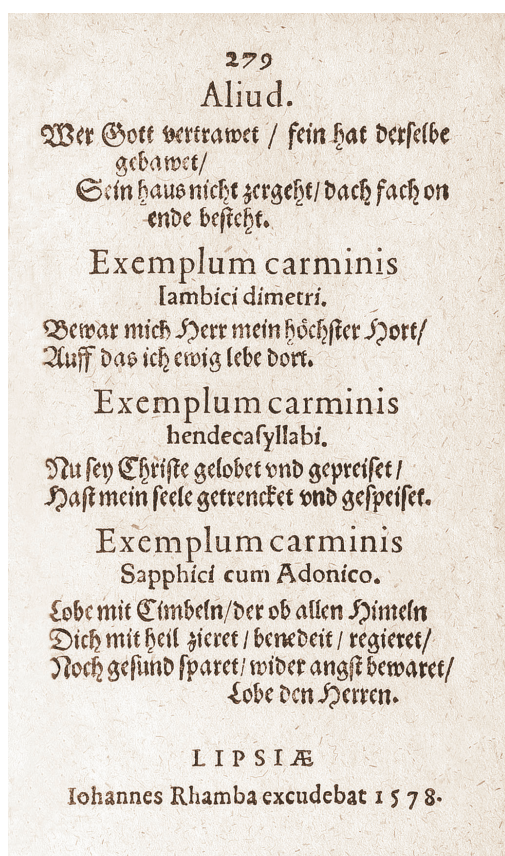 279
Aliud.
Wer Gott vertrawet / fein hat derselbe
gebawet/
Sein haus nicht zergeht/ dach fach on
ende besteht.
Exemplum carminis
Iambici dimetri.
Bewar mich Herr mein höchster Hort/
Auff das ich ewig lebe dort.
Exemplum carminis
hendecasyllabi.
Nu sey Christe gelobet vnd gepreiset /
Hast mein seele getrencket vnd gespeiset.
Exemplum carminis
Sapphici cum Adonico.
Lobe mit Cimbeln/der ob allen Himeln
Dich mit heil zieret / benedeit / regieret/
Noch gesund sparet/ wider angst bewaret/
Lobe den Herren.
LIPSIÆ
Iohannes Rhamba excudebat 1578.